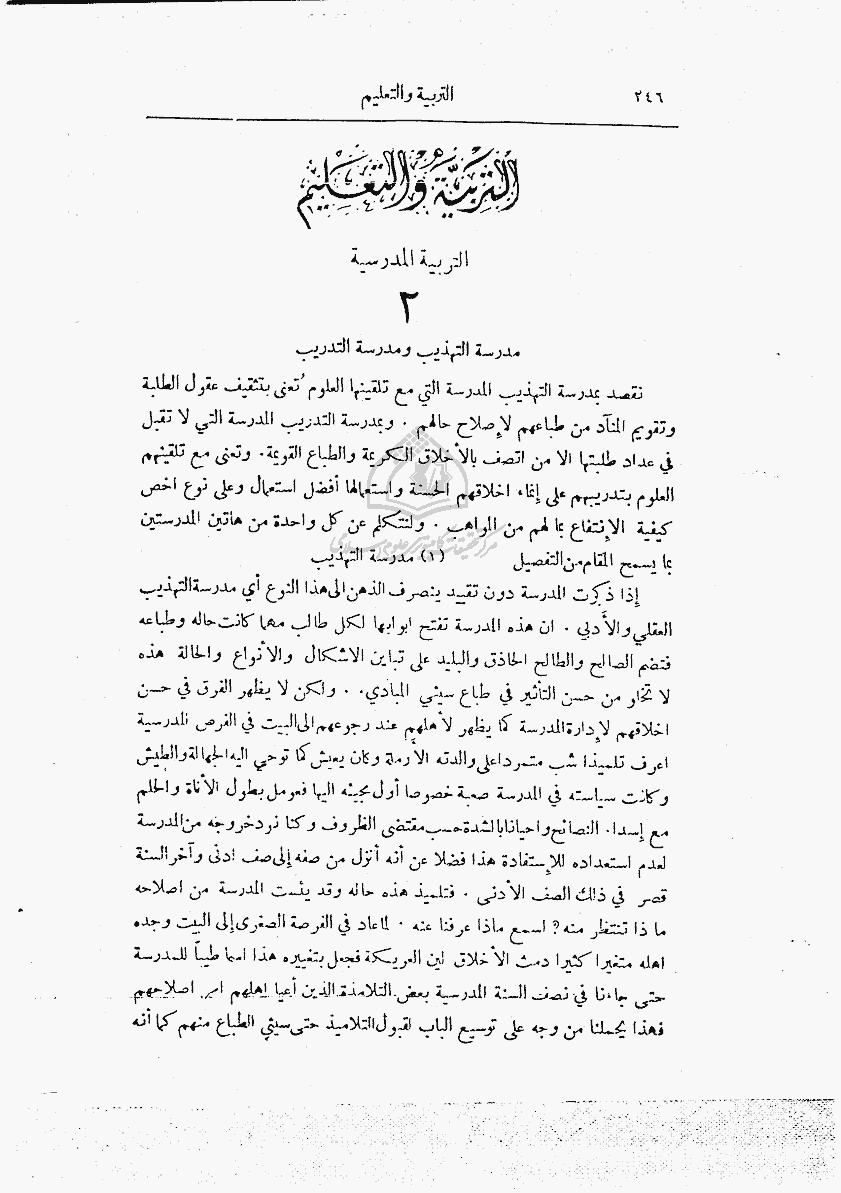 ٢٤٦ التربية والتعليم
التربية والتعليم
التربية المدرسية
٢
مدرسة التهذيب ومدرسة التدريب
نقصد بمدرسة التهذيب المدرسة التي مع تلقينها العلوم تُعنى بتثقيف عقول الطلبة
وتقويم المنآد من طباعهم لإصلاح حالهم . وبمدرسة التدريب المدرسة التي لا تقبل
في عداد طلبتها الا من اتصف بالأخلاق الكريمة والطباع القويمة. وتعنى مع تلقينهم
العلوم بتدريبهم على إنماء اخلاقهم الحسنة واستعمالها أفضل استعمال وعلى نوع اخص
كيفية الإنتفاع بما لهم من المواهب . ولنتكلم عن كل واحدة من هاتين المدرستين
بما يسمح المقام من التفصيل (١) مدرسة التهذيب
إذا ذكرت المدرسة دون تقييد ينصرف الذهن الى هذا النوع أي مدرسة التهذيب
العقلي والأدبي . ان هذه المدرسة تفتح ابوابها لكل طالب مهما كانت حاله وطباعه
فتضم الصالح والطالح الحاذق والبليد على تباين الاشكال والأنواع والحالة هذه
لا تخلو من حسن التأثير في طباع سيئي المبادي. . ولكن لا يظهر الفرق في حسن
اخلاقهم لإدارة المدرسة كما يظهر لأهلهم عند رجوعهم الى البيت في الفرص المدرسية
اعرف تلميذا شب متمردا على والدته الأرملة وكان يعيش كما توحي اليه الجهالة والطيش
وكانت سياسته في المدرسة صعبة خصوصا أول مجيئه اليها فعومل بطول الأناة والحلم
مع إسداء النصائح واحيانا بالشدة حسب مقتضى الظروف وكنا نرد خروجه من المدرسة
لعدم استعداده للإستفادة هذا فضلا عن أنه أنزل من صفه إلى صف ادنى وآخر السنة
قصر في ذلك الصف الأدنى . فتلميذ هذه حاله وقد يئست المدرسة من اصلاحه
ما ذا تنتظر منه? اسمع ماذا عرفنا عنه . لما عاد في الفرصة الصغرى إلى البيت وجده
اهله متغيرا كثيرا دمث الأخلاق لين العريكة فجعل بتغييره هذا اسما طيباً للمدرسة
حتى جاءنا في نصف السنة المدرسية بعض التلامذة الذين أعيا اهلهم امر اصلاحهم
فهذا يحملنا من وجه على توسيع الباب لقبول التلاميذ حتى سيئي الطباع منهم كما أنه